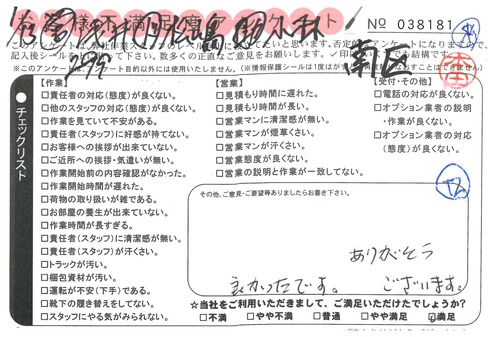 お客様不満足度アンケート
No 038181
南区
チェックリスト
【作業】
□責任者の対応(態度)が良くない。
□他のスタッフの対応(態度)が良くない。
□作業を見ていて不安がある。
□責任者(スタッフ)に好感が持てない。
□お客様への挨拶が出来ていない。
□ご近所への挨拶・気遣いが無い。
□作業開始前の内容確認がなかった。
□作業開始時間が遅れた。
□荷物の取り扱いが雑である。
□お部屋の養生が出来ていない。
□作業時間が長すぎる。
□責任者(スタッフ)に清潔感が無い。
□責任者(スタッフ)が汗くさい。
□トラックが汚い。
□梱包資材が汚い。
□運転が不安(下手)である。
□靴下の履き替えをしてない。
□スタッフにやる気がみられない。
【営業】
□見積もり時間に遅れた。
□見積もり時間が長い。
□営業マンに清潔感が無い。
□営業マンが煙草くさい。
□営業マンが汗くさい。
□営業態度が良くない。
□営業の説明と作業が一致してない。
【受付・その他】
□電話の対応が良くない。
□オプション業者の説明・作業が良くない。
□オプション業者の対応(態度)が良くない。
その他、ご意見・ご要望等ありましたらお書き下さい。
良かったです。
ありがとう
ございます。
☆当社をご利用いただきまして、ご満足いただけたでしょうか?
□不満 □やや不満 □普通 □やや満足 ☑満足